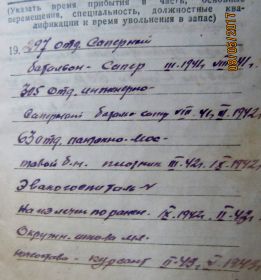 (Указать время прибытия в часть, основные
перемещения, специальность, должностные ква-
лификации и время увольнения в запас)
19. 297 отд. Саперный
батальон - Сапер III. 1941, VIII. 41г.
325 отд. инженерно-
Саперный батал. VIII 41, III. 1942г.
63 отд. понтонно-мос-
товой б-н. III-42г. IX. 1942г.
Эвакогоспиталь N
На излечен. по ранен. IX. 1942г. II-43г.
Окружн. школа мл.
- курсант II-43,